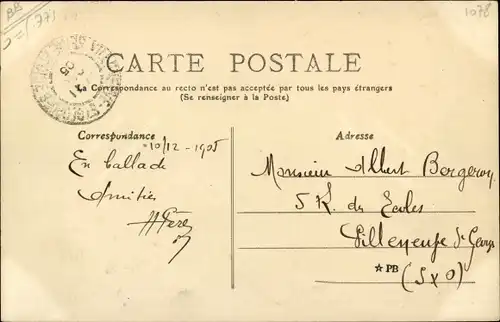 1078
CARTE POSTALE
La Correspondance au recto n'est pas acceptée par tous les pays étrangers
(Se renseigner à la Poste)
Correspondance
10/12-1905
En ballade
Amitiés
Adresse
Monsieur Albert Bergeron
5 R. des Ecoles
Villeneuve St Georges
★ PB
(S x O)